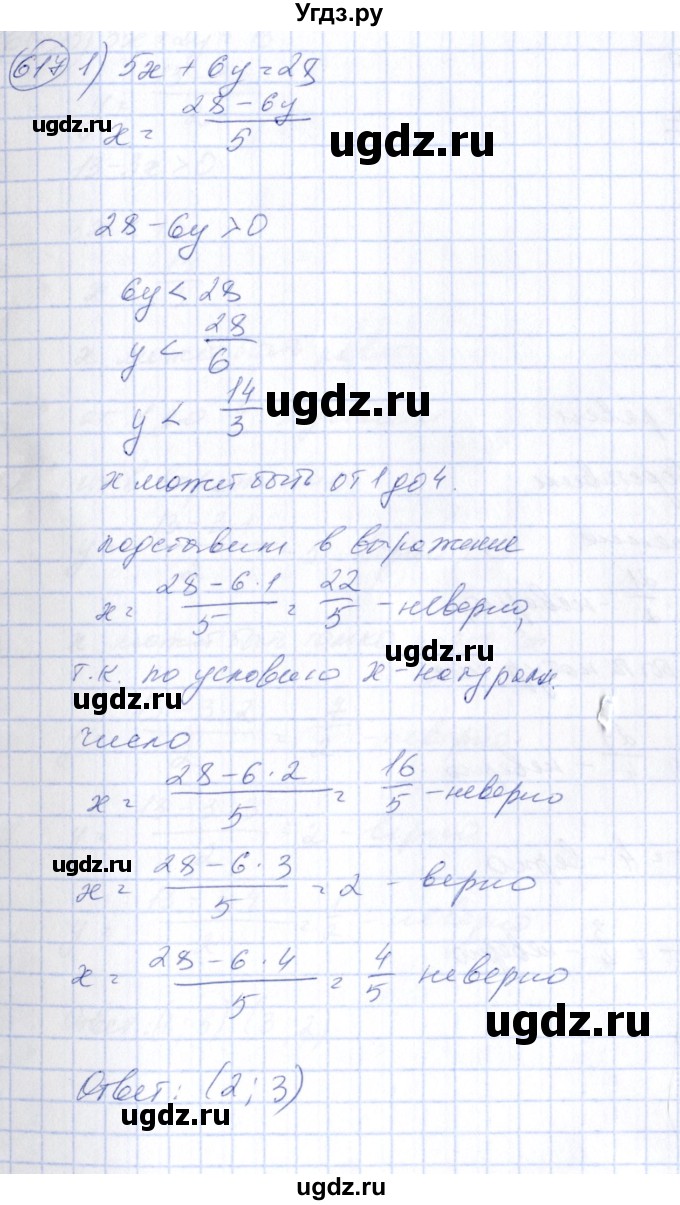 Угдз.ру
617 1) 5x + 6y = 28
x = (28 - 6y)/5
ugdz.ru
ugdz.ru
28 - 6y > 0
6y < 28
y < 28/6
y < 14/3
ugdz.ru
x может быть от 1 до 4.
подставим в выражение
x = (28 - 6 · 1)/5 = 22/5 - неверно,
ugdz.ru
т.к. по условию x - натуральн.
число
x = (28 - 6 · 2)/5 = 16/5 - неверно
ugdz.ru
x = (28 - 6 · 3)/5 = 2 - верно
x = (28 - 6 · 4)/5 = 4/5 неверно
ugdz.ru
Ответ: (2; 3)
ugdz.ru
ugdz.ru